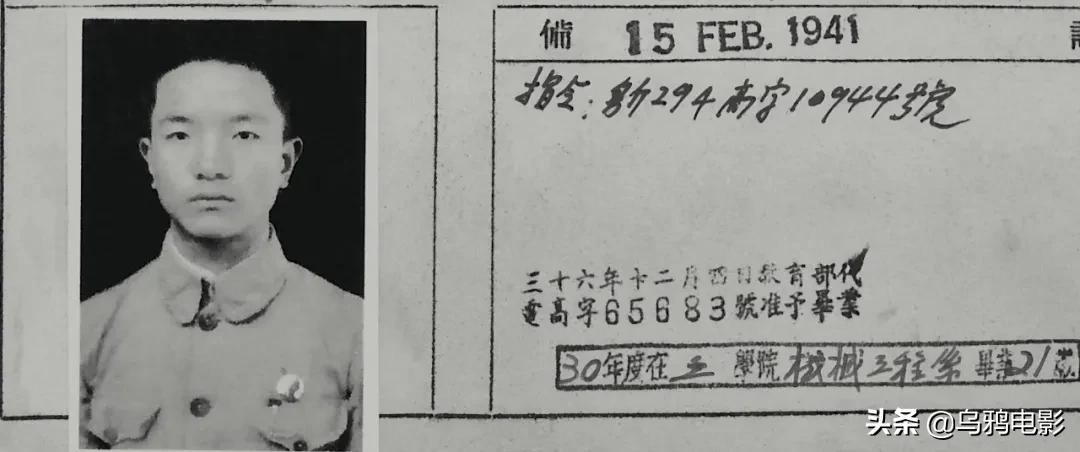 備 15 FEB. 1941
指令:的294高字10944號
三十六年十二月四日教育部代
電高字65683號准予畢業
30年度在工學院機械工程系畢業21歲
头条 @乌鸦电影